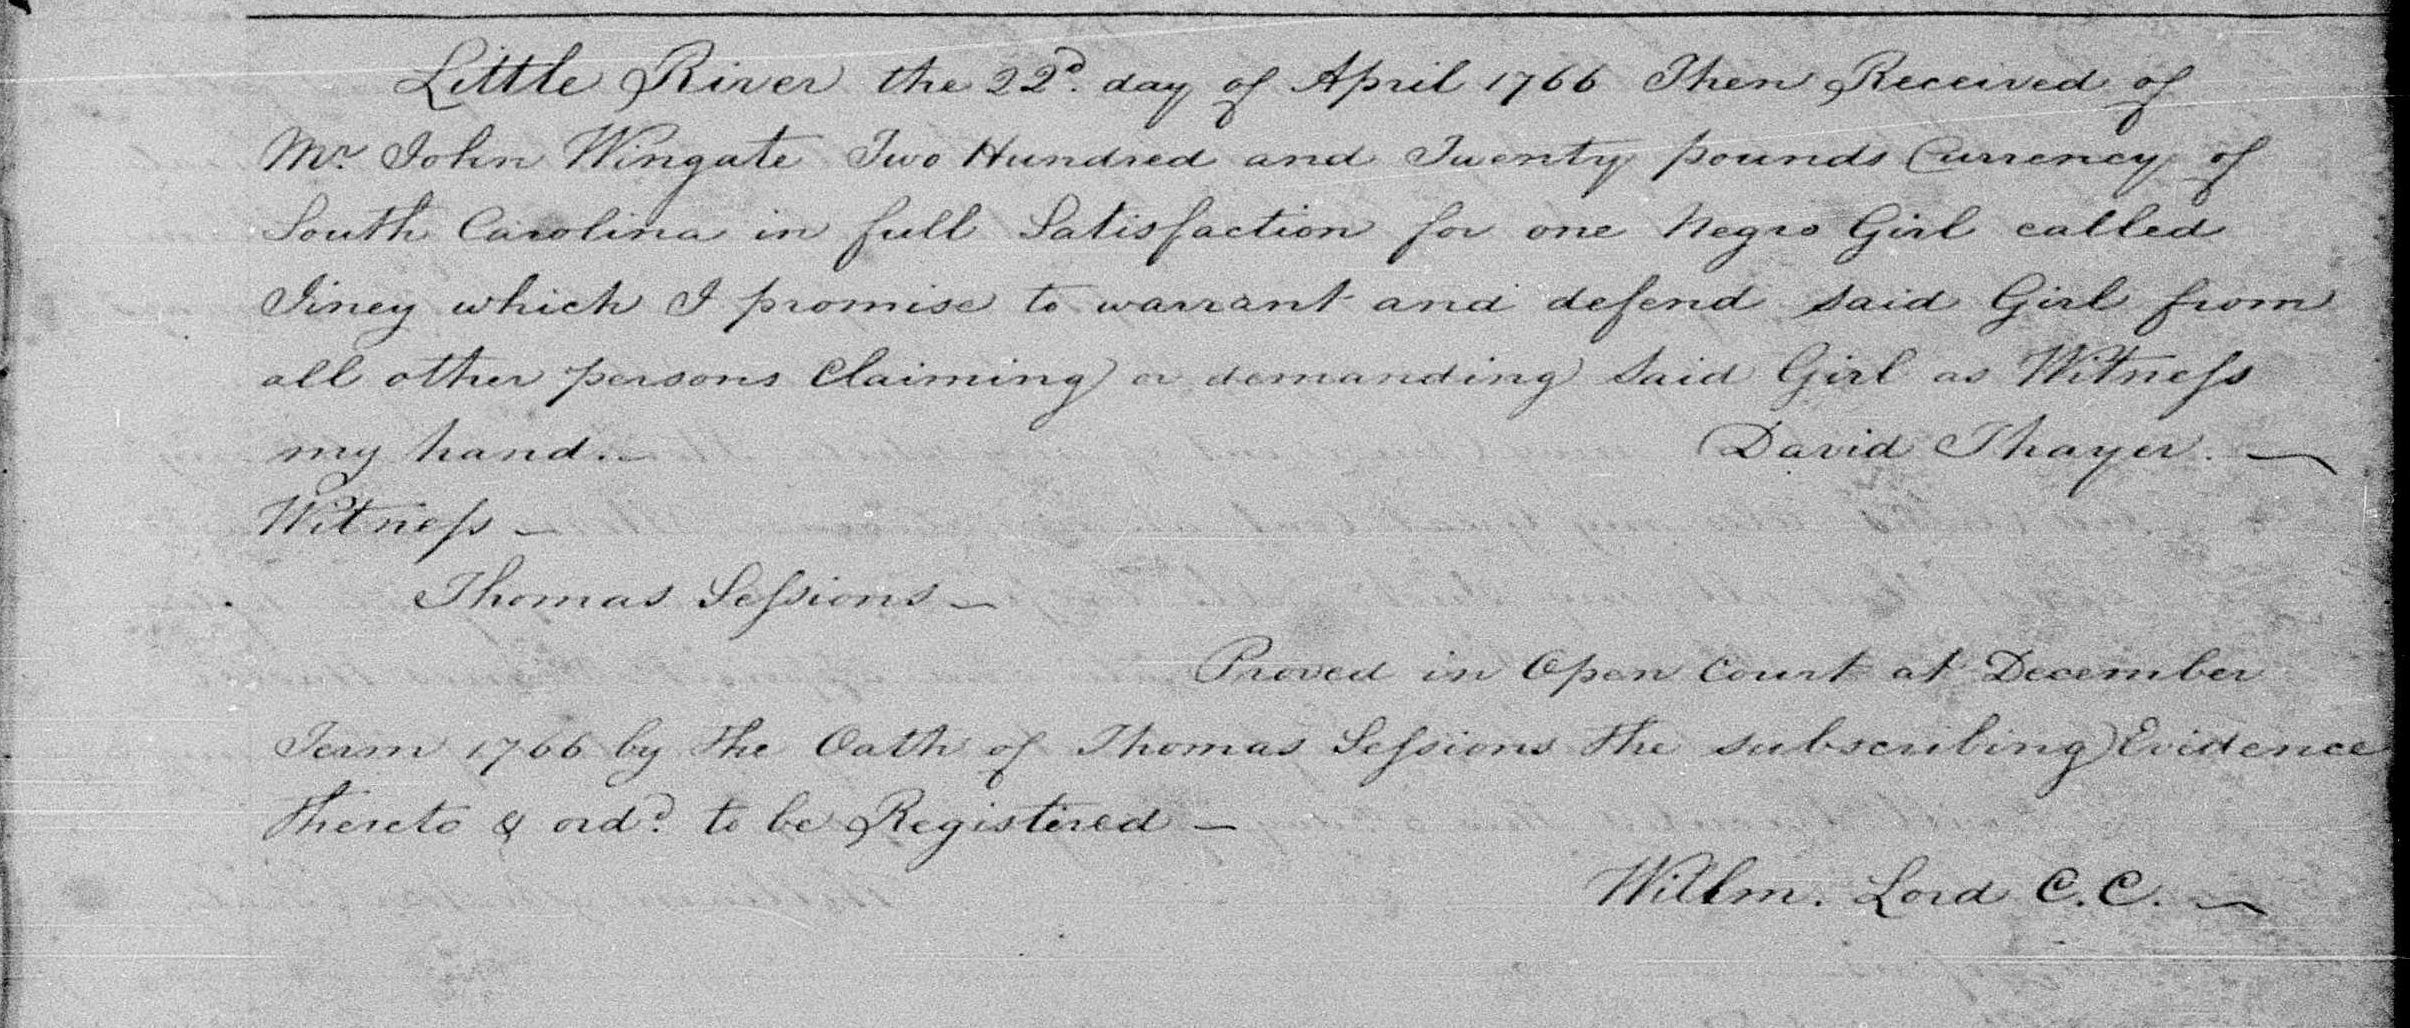 Little River the 22d. day of April 1766 Then Received of
Mr. John Wingate Two Hundred and Twenty pounds Currency of
South Carolina in full Satisfaction for one Negro Girl called
Jiney which I promise to warrant and defend said Girl from
all other persons Claiming or demanding said Girl as Witness
my hand. —
David Thayer. —
Witness —
Thomas Sessions —
Proved in Open Court at December
Term 1766 by the Oath of Thomas Sessions the subscribing Evidence
thereto & ord. to be Registered —
Willm. Lord C. C. —